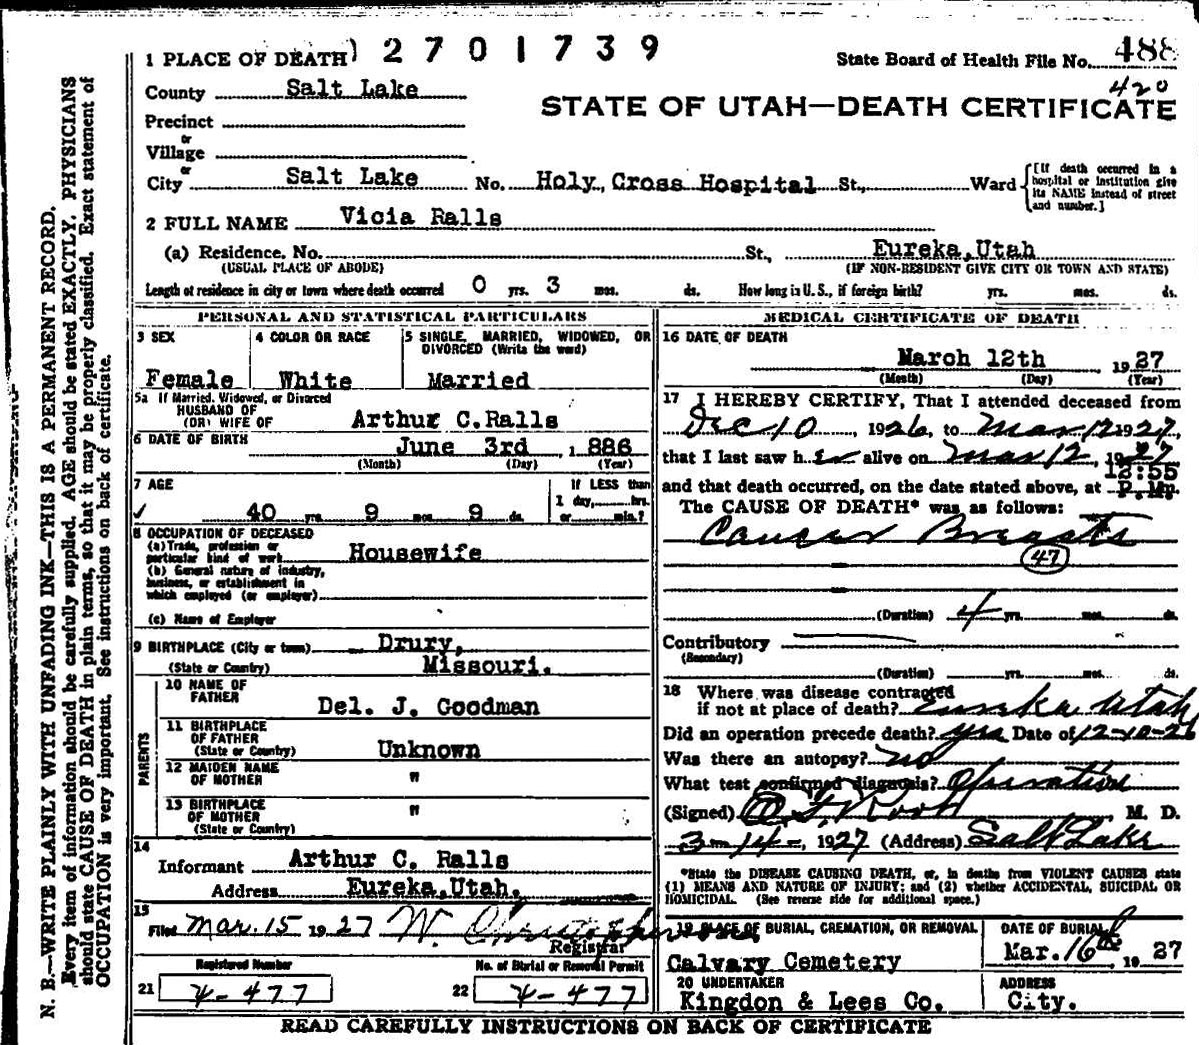 1 PLACE OF DEATH) 2701739
State Board of Health File No. 488
420
County Salt Lake
STATE OF UTAH—DEATH CERTIFICATE
Precinct
or
Village
or
City Salt Lake No. Holy Cross Hospital St., Ward
[If death occurred in a
hospital or institution give
its NAME instead of street
and number.]
2 FULL NAME Vicia Ralls
(a) Residence. No. St., Eureka, Utah
(USUAL PLACE OF ABODE) (IF NON-RESIDENT GIVE CITY OR TOWN AND STATE)
Length of residence in city or town where death occurred 0 yrs. 3 mos. ds. How long in U. S., if foreign birth? yrs. mos. ds.
PERSONAL AND STATISTICAL PARTICULARS
3 SEX 4 COLOR OR RACE 5 SINGLE, MARRIED, WIDOWED, OR
DIVORCED (Write the word)
Female White Married
5a If Married, Widowed, or Divorced
HUSBAND OF
(OR) WIFE OF Arthur C. Ralls
6 DATE OF BIRTH June 3rd 1886
(Month) (Day) (Year)
7 AGE If LESS than
1 day, hrs.
40 yrs. 9 mos. 9 ds. or min.?
8 OCCUPATION OF DECEASED
(a) Trade, profession or
particular kind of work Housewife
(b) General nature of industry,
business, or establishment in
which employed (or employer)
(c) Name of Employer
9 BIRTHPLACE (City or town) Drury,
(State or Country) Missouri.
PARENTS
10 NAME OF
FATHER Del. J. Goodman
11 BIRTHPLACE
OF FATHER
(State or Country) Unknown
12 MAIDEN NAME
OF MOTHER "
13 BIRTHPLACE
OF MOTHER "
(State or Country)
14
Informant Arthur C. Ralls
Address Eureka, Utah.
15
Filed Mar. 15 1927 W. Christopherson
Registrar
Registered Number No. of Burial or Removal Permit
21 4-477 22 4-477
MEDICAL CERTIFICATE OF DEATH
16 DATE OF DEATH
March 12th 1927
(Month) (Day) (Year)
17 I HEREBY CERTIFY, That I attended deceased from
Dec 10, 1926, to Mar 12 1927,
that I last saw her alive on Mar 12, 1927
12:55
and that death occurred, on the date stated above, at P. Mm.
The CAUSE OF DEATH* was as follows:
Cancer Breasts
47
(Duration) 4 yrs. mos. ds.
Contributory
(Secondary)
(Duration) yrs. mos. ds.
18 Where was disease contracted
if not at place of death? Eureka Utah
Did an operation precede death? yes Date of 12-10-26
Was there an autopsy? no
What test confirmed diagnosis? Operation
(Signed) M. D.
3-14-, 1927 (Address) Salt Lake
*State the DISEASE CAUSING DEATH, or, in deaths from VIOLENT CAUSES state
(1) MEANS AND NATURE OF INJURY; and (2) whether ACCIDENTAL, SUICIDAL OR
HOMICIDAL. (See reverse side for additional space.)
19 PLACE OF BURIAL, CREMATION, OR REMOVAL DATE OF BURIAL
Calvary Cemetery Mar. 16th 1927
20 UNDERTAKER ADDRESS
Kingdon & Lees Co. City.
READ CAREFULLY INSTRUCTIONS ON BACK OF CERTIFICATE
N. B.—WRITE PLAINLY WITH UNFADING INK—THIS IS A PERMANENT RECORD.
Every item of information should be carefully supplied. AGE should be stated EXACTLY. PHYSICIANS
should state CAUSE OF DEATH in plain terms, so that it may be properly classified. Exact statement of
OCCUPATION is very important. See instructions on back of certificate.